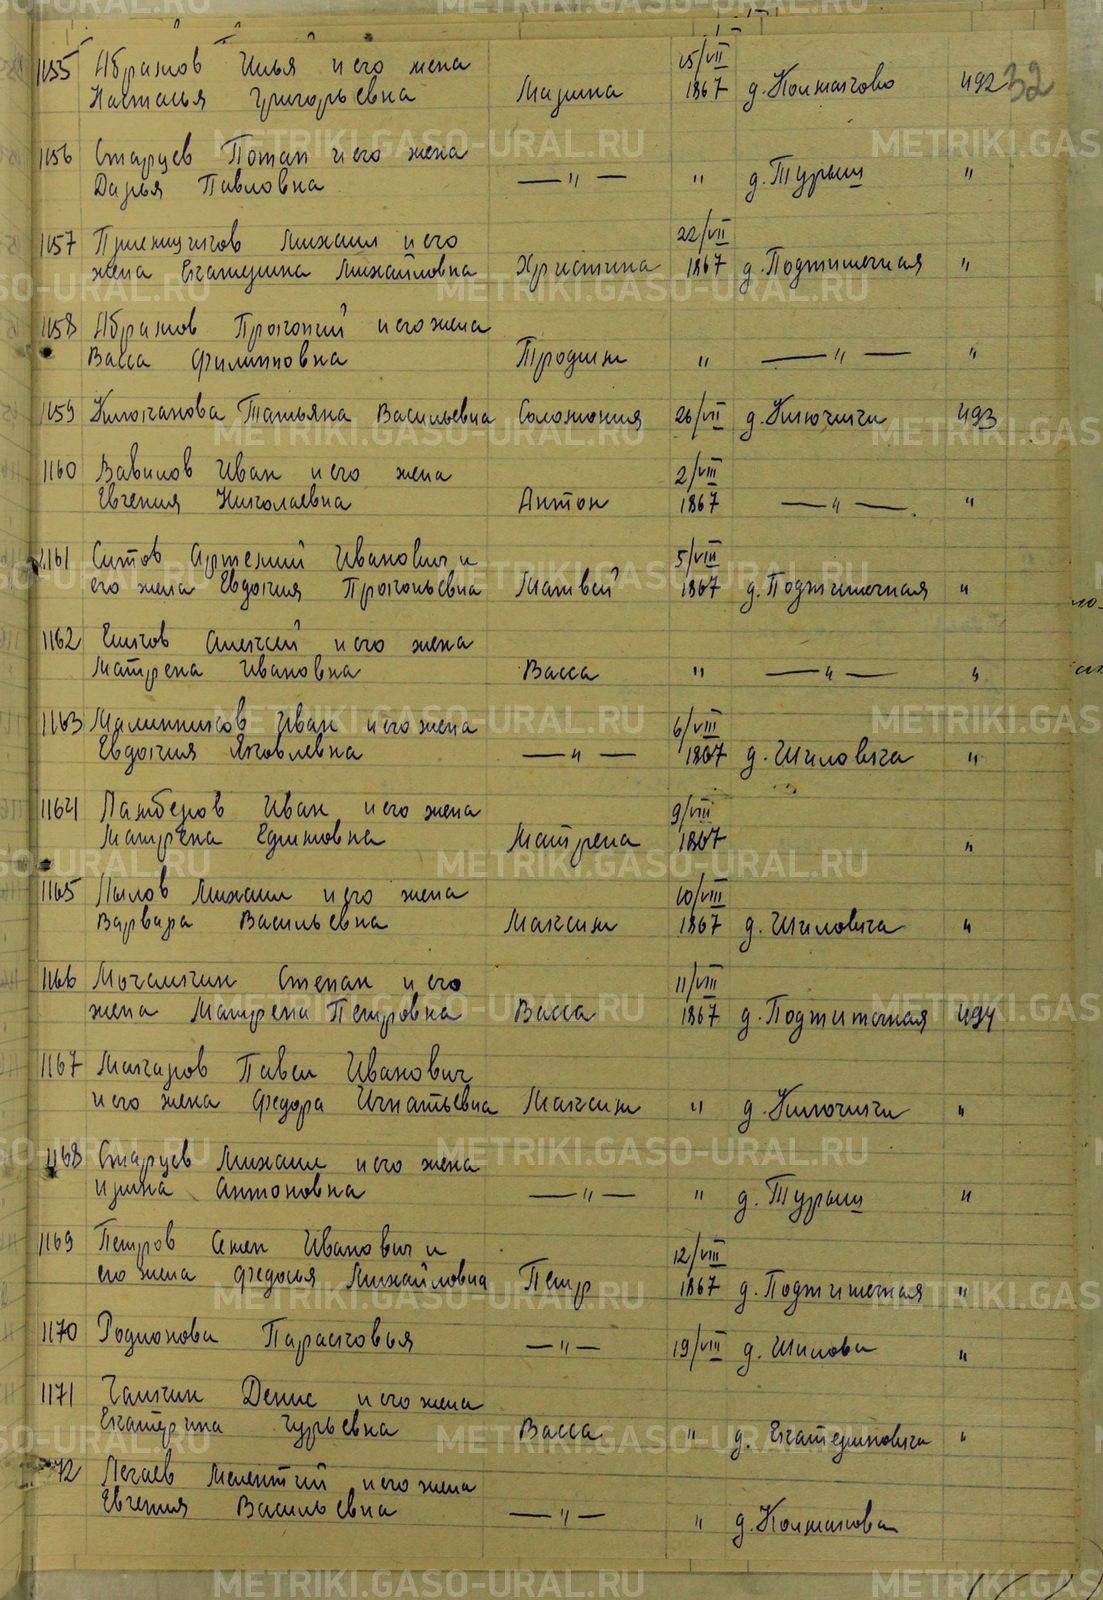 32
1155 Абрамов Илья и его жена
Наталья Григорьевна Марина 15/VII 1867 д. Колмаково 492
1156 Старцев Потап и его жена
Дарья Павловна —"— " д. Турыш "
1157 Пшеницигов Михаил и его
жена Екатерина Михайловна Христина 22/VII 1867 д. Подтипочная "
1158 Абрамов Прокопий и его жена
Васса Филипповна Трофим " —"— "
1159 Ключанова Татьяна Васильевна Соломония 26/VII д. Ключики 493
1160 Вавилов Иван и его жена
Евгения Николаевна Антон 2/VIII 1867 —"— "
1161 Ситов Артемий Иванович и
его жена Евдокия Прокопьевна Матвей 5/VIII 1867 д. Подтипочная "
1162 Алексей и его жена
Матрена Ивановна Васса " —"— "
1163 Малинников Иван и его жена
Евдокия Яковлевна —"— 6/VIII 1867 д. Шиловка "
1164 Ламберов Иван и его жена
Матрена Ефимовна Матрена 9/VIII 1867 "
1165 Пылов Михаил и его жена
Варвара Васильевна Максим 10/VIII 1867 д. Шиловка "
1166 Мочалкин Степан и его
жена Матрена Петровна Васса 11/VIII 1867 д. Подтипочная 494
1167 Макаров Павел Иванович
и его жена Федора Игнатьевна Максим " д. Ключики "
1168 Старцев Михаил и его жена
Ирина Антоновна —"— " д. Турыш "
1169 Петров Семен Иванович и
его жена Федосья Михайловна Петр 12/VIII 1867 д. Подтипочная "
1170 Родионова Парасковья —"— 19/VIII д. Шилова "
1171 Галкин Денис и его жена
Екатерина Гурьевна Васса " д. Екатериновка "
72 Легаев Мелентий и его жена
Евгения Васильевна —"— " д. Колмакова
METRIKI.GASO-URAL.RU